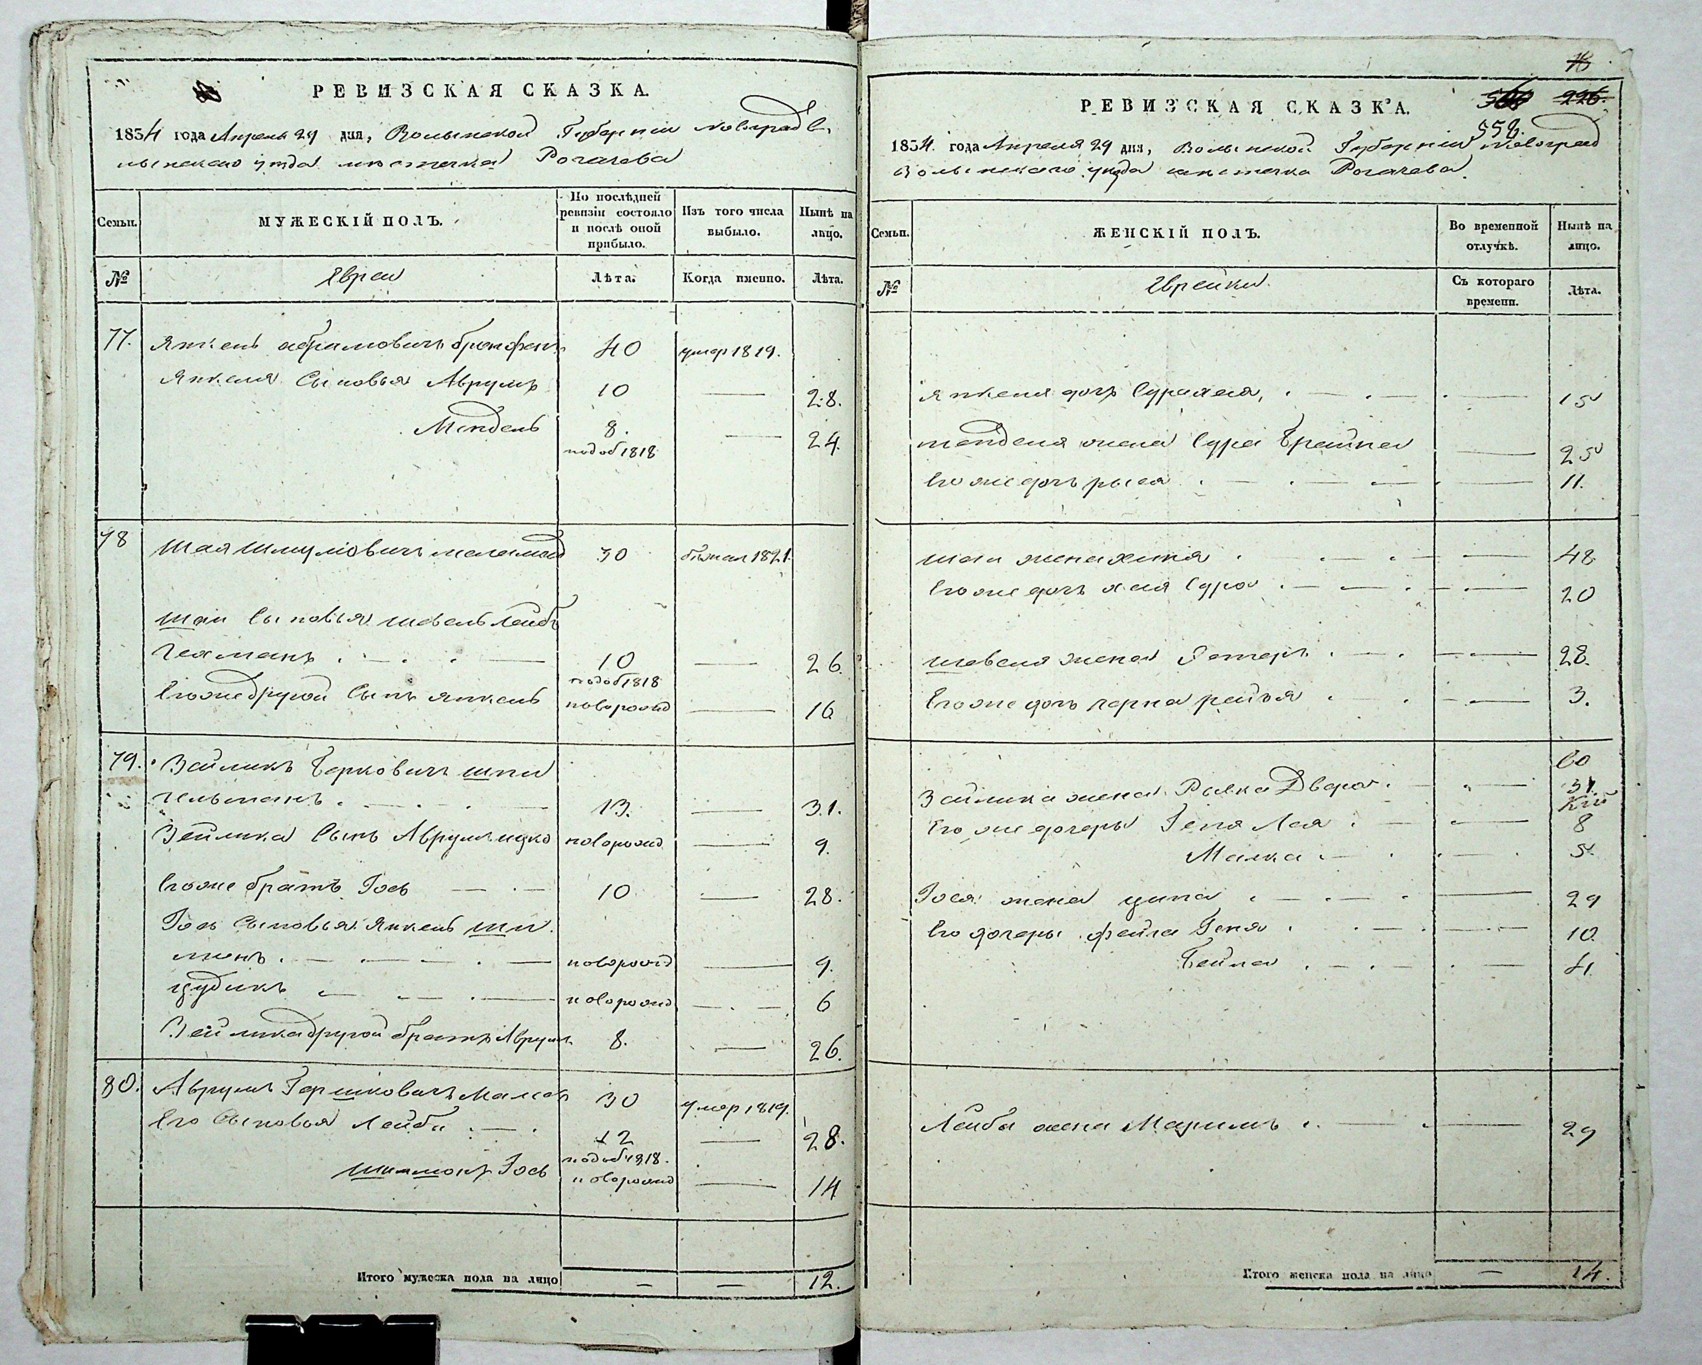 РЕВИЗСКАЯ СКАЗКА.
1834 года Апреля 29 дня, Волынской Губернии Новоград В.
лынского уезда местечка Рогачева
Семьи.
МУЖЕСКІЙ ПОЛЪ.
По послѣдней ревизіи состояло и послѣ оной прибыло.
Изъ того числа выбыло.
Нынѣ на лицо.
№
Евреи
Лѣта.
Когда именно.
Лѣта.
77. Янкель Абрамовичъ 40 умер 1819.
Янкеля Сыновья Аврумъ 10 — 28.
Мендель 8. — 24.
по доб 1818
78 Шая Шмулёвичъ 30 бежал 1821.
Шаи Сыновья Шевель Лейбъ
10 — 26.
по доб 1818
Его же другой Сынъ Янкель новорожд — 16
79. Зейликъ Берковичъ Шпи
гельманъ . — . — 13. — 31.
Зейлика Сынъ Аврумъ Ицко новорожд — 9.
Его же братъ Іось — 10 — 28.
Іося Сыновья Янкель Ши.
монъ . — новорожд — 9.
Цудикъ — новорожд — 6
Зейлика другой братъ Аврумъ 8. — 26.
80. Аврумъ Гершковичъ 30 умер 1819.
Его Сыновья Лейба . — . 12 — 28.
по доб 1818.
Шимонъ Іось новорожд — 14
Итого мужеска пола на лицо — — 12.
16
566 226.
558.
РЕВИЗСКАЯ СКАЗКА.
1834. года Апреля 29 дня, Волынской Губернии Новоград
Волынского уезда местечка Рогачева.
Семьи.
ЖЕНСКІЙ ПОЛЪ.
Во временной отлучкѣ.
Нынѣ на лицо.
№
Еврейки.
Съ котораго времени.
Лѣта.
Янкеля дочь — 15
Менделя жена Сура Брайна — 25
Его же дочь Рыся — 11.
Шаи жена — 48
Его же дочь Хая Сура — 20
Шевеля жена Естеръ — 28.
Его же дочь Черна Рейзя — 3.
60
Зейлика жена Рывка Двора — 31.
Его же дочеры Геня Лея — 8
Малка — 5.
Іося жена Ципа — 29
Его дочеры Фейга Геня — 10
Бейла — 4.
Лейбы жена Маримъ — 29
Итого женска пола на лицо — 14.